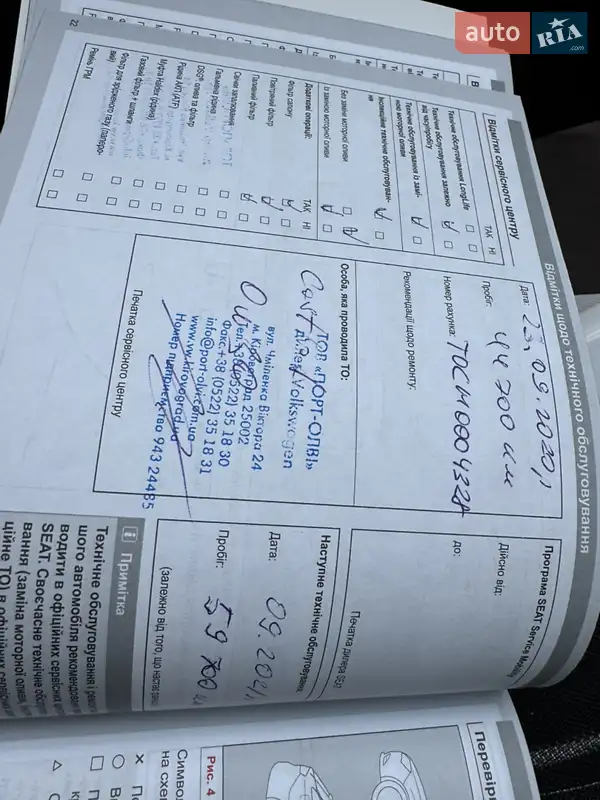 auto RIA.com
22
Відмітки щодо технічного обслуговування
Відмітки сервісного центру
ТАК НІ
Технічне обслуговування LongLife
Технічне обслуговування залежно
від часу/пробігу
Технічне обслуговування із замі-
ною моторної оливи
Інспекційне технічне обслуговуван-
ня
Без заміни моторної оливи
Із заміною моторної оливи
Додаткові операції:
ТАК НІ
Фільтр салону
Повітряний фільтр
Паливний фільтр
Свічки запалювання
Гальмівна рідина
DSG®: олива та фільтр
Рідина АКП (ATF)
Муфта Haldex (олива)
Ремінь ГРМ
Дата: 23.09.2020р
Пробіг: 44 700 км
Номер рахунка:
Рекомендації щодо ремонту:
Особа, яка проводила ТО:
ТОВ «ПОРТ-ОЛВІ»
Дилер Volkswagen
вул. Чміленка Віктора 24
м. Кіровоград 25002
Тел. +38 (0522) 35 18 30
Факс +38 (0522) 35 18 31
info@port-olvi.com.ua
www.vw.kirovograd.ua
Номер підприємства 943 24485
Печатка сервісного центру
Програма SEAT Service Mobility
Дійсно від:
до:
Печатка дилера SEAT
Наступне технічне обслуговування
Дата: 09.2021р
Пробіг: 59 700
(залежно від того, що настає
i Примітка
Технічне обслуговування і
шого автомобіля рекоменду
водити в офіційних сервісних
SEAT. Своєчасне технічне
вання (заміна моторної оливи,
ційне ТО) в офіційних сервісних
Перевір
Рис. 4
Символ
на схе